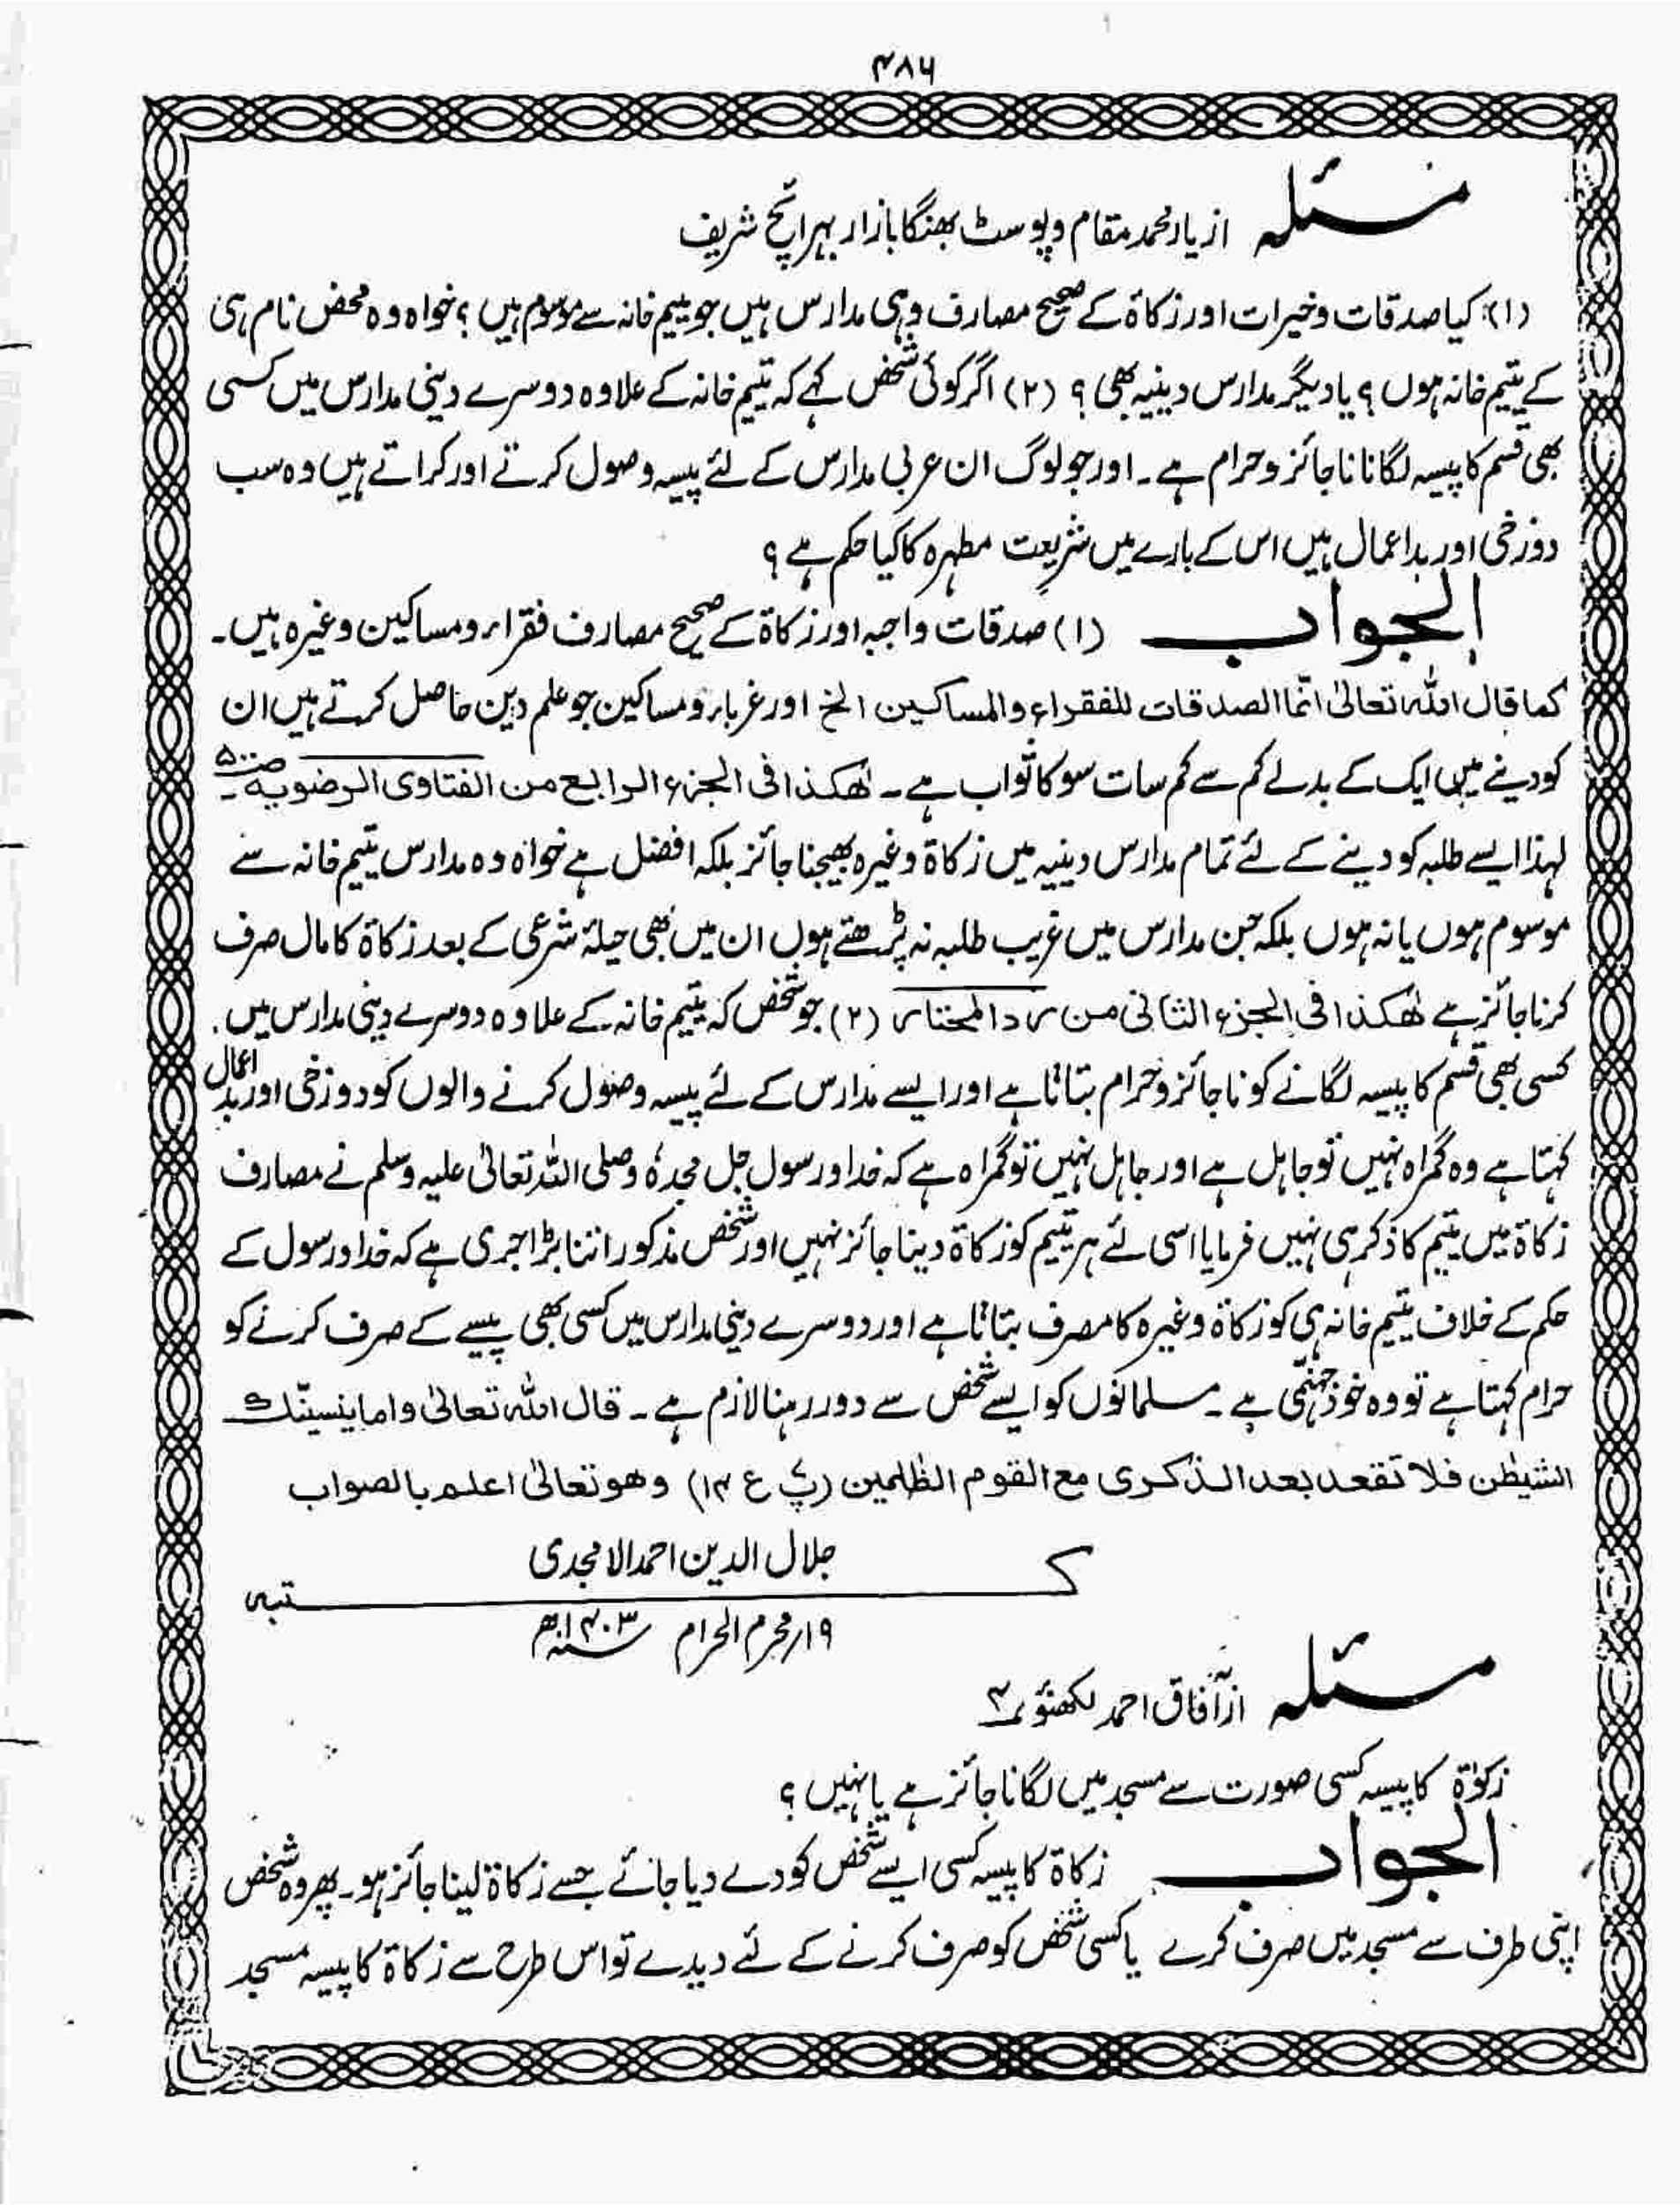 ۴۸۶
مسئلہ از یار محمد مقام و پوسٹ بھنگا بازار بہرائچ شریف
(۱) کیا صدقات و خیرات اور زکاۃ کے صحیح مصارف وہی مدارس ہیں جو یتیم خانہ سے موسوم ہیں ؟ خواہ وہ محض نام ہی
کے یتیم خانہ ہوں ؟ یا دیگر مدارس دینیہ بھی ؟ (۲) اگر کوئی شخص کہے کہ یتیم خانہ کے علاوہ دوسرے دینی مدارس میں کسی
بھی قسم کا پیسہ لگانا ناجائز و حرام ہے ۔ اور جو لوگ ان عربی مدارس کے لئے پیسہ وصول کرتے اور کراتے ہیں وہ سب
دوزخی اور بداعمال ہیں اس کے بارے میں شریعت مطہرہ کا کیا حکم ہے ؟
الجواب (۱) صدقات واجبہ اور زکاۃ کے صحیح مصارف فقراء و مساکین وغیرہ ہیں ۔
کما قال اللہ تعالیٰ انّما الصدقات للفقراء والمساکین الخ اور غرباء و مساکین جو علم دین حاصل کرتے ہیں ان
کو دینے میں ایک کے بدلے کم سے کم سات سو کا ثواب ہے ۔ ھٰکذا فی الجزء الرابع من الفتاوی الرضویہ ص۵۰۰ ۔
لہذا ایسے طلبہ کو دینے کے لئے تمام مدارس دینیہ میں زکاۃ وغیرہ بھیجنا جائز بلکہ افضل ہے خواہ وہ مدارس یتیم خانہ سے
موسوم ہوں یا نہ ہوں بلکہ جن مدارس میں غریب طلبہ نہ پڑھتے ہوں ان میں بھی حیلۂ شرعی کے بعد زکاۃ کا مال صرف
کرنا جائز ہے ھٰکذا فی الجزء الثانی من ردالمحتار (۲) جو شخص کہ یتیم خانہ کے علاوہ دوسرے دینی مدارس میں
کسی بھی قسم کا پیسہ لگانے کو ناجائز و حرام بتاتا ہے اور ایسے مدارس کے لئے پیسہ وصول کرنے والوں کو دوزخی اور بد اعمال
کہتا ہے وہ گمراہ نہیں تو جاہل ہے اور جاہل نہیں تو گمراہ ہے کہ خدا و رسول جل مجدہٗ وصلی اللہ تعالیٰ علیہ وسلم نے مصارف
زکاۃ میں یتیم کا ذکر ہی نہیں فرمایا اسی لئے ہر یتیم کو زکاۃ دینا جائز نہیں اور شخص مذکور اتنا بڑا جری ہے کہ خدا و رسول کے
حکم کے خلاف یتیم خانہ ہی کو زکاۃ وغیرہ کا مصرف بتاتا ہے اور دوسرے دینی مدارس میں کسی بھی پیسے کے صرف کرنے کو
حرام کہتا ہے تو وہ خود جہنّمی ہے ۔ مسلمانوں کو ایسے شخص سے دور رہنا لازم ہے ۔ قال اللہ تعالیٰ واما ینسینّک
الشیطٰن فلا تقعد بعد الذکری مع القوم الظٰلمین (پ۷ ع ۱۴) وھو تعالیٰ اعلم بالصواب
جلال الدین احمد الامجدی
کتبہ
۱۹؍ محرم الحرام ۱۴۰۳ھ
مسئلہ از آفاق احمد لکھنؤ ۴
زکوٰۃ کا پیسہ کسی صورت سے مسجد میں لگانا جائز ہے یا نہیں ؟
الجواب زکاۃ کا پیسہ کسی ایسے شخص کو دے دیا جائے جسے زکاۃ لینا جائز ہو ۔ پھر وہ شخص
اپنی طرف سے مسجد میں صرف کرے یا کسی شخص کو صرف کرنے کے لئے دیدے تو اس طرح سے زکاۃ کا پیسہ مسجد